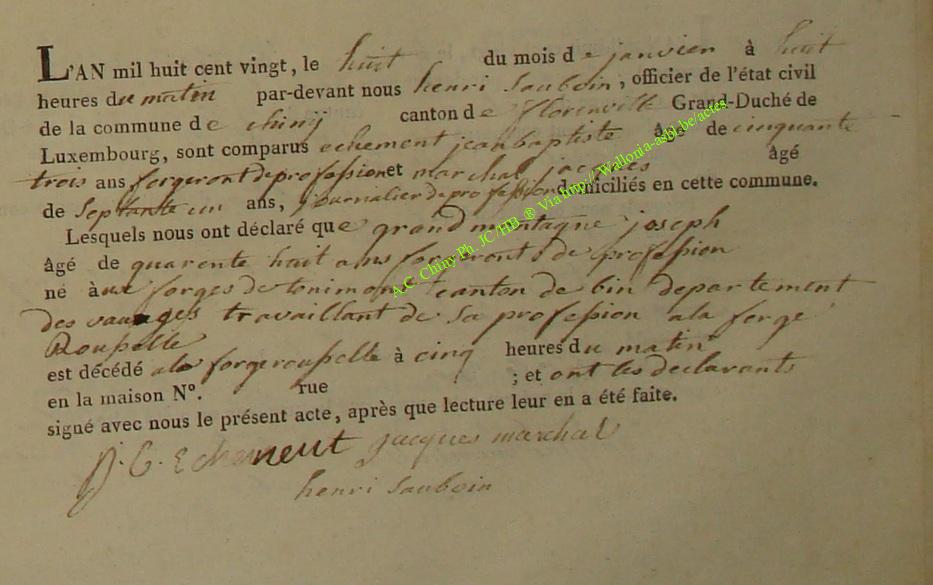 L'AN mil huit cent vingt, le huit du mois de janvier à huit
heures du matin par-devant nous henri Sauboin, officier de l'état civil
de la commune de chiny canton de florenville Grand-Duché de
Luxembourg, sont comparus echement jean baptiste âgé de cinquante
trois ans forgeront de profession et marchal jacques âgé
de Septante un ans, journalier de profession domiciliés en cette commune.
Lesquels nous ont déclaré que grand montagne joseph
âgé de quarente huit ans forgeront de profession
né à aux forges de tenimont canton de bin departement
des vauges travaillant de Sa profession a la forge
Roupelle
est décédé a la forge roupelle à cinq heures du matin
en la maison N°. rue ; et ont les declarants
signé avec nous le présent acte, après que lecture leur en a été faite.
J. B. Echement jacques marchal
henri Sauboin
A.C. Chiny Ph. JC/HB ® Via http://Wallonia-asbl.be/actes